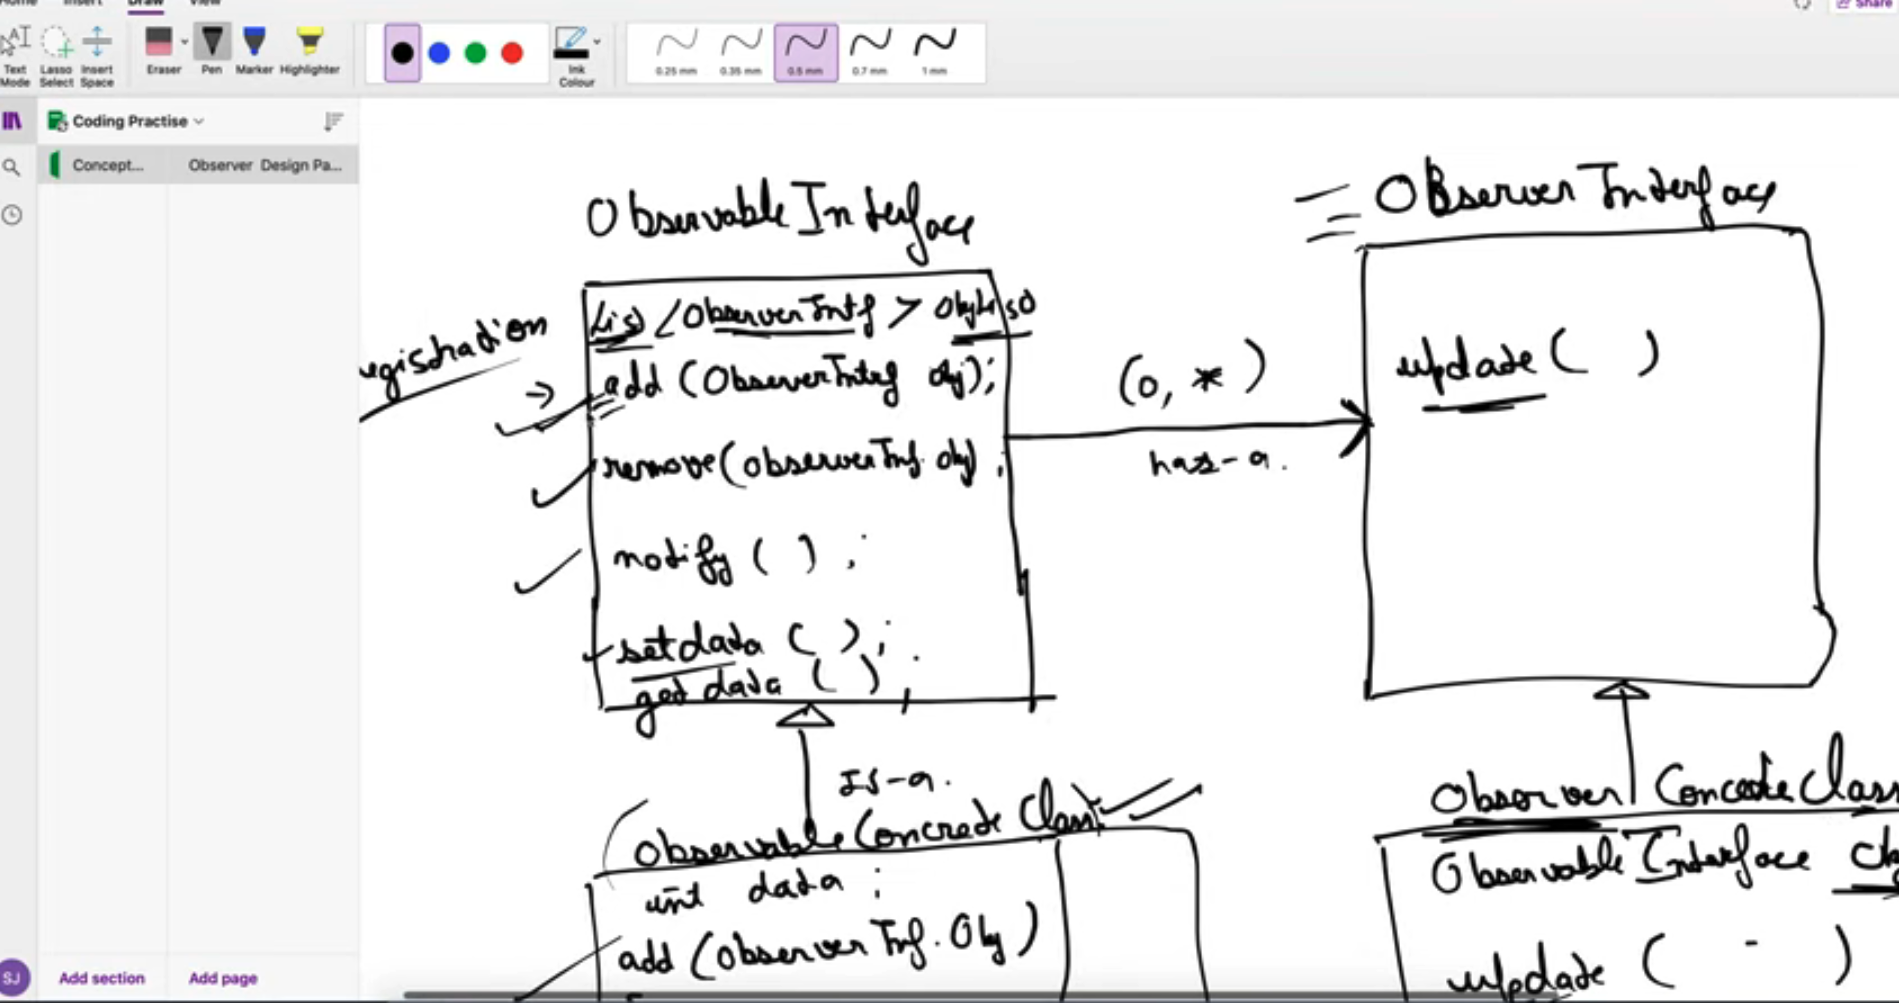 Home Insert Draw View
Share
Text Mode
Lasso Select
Insert Space
Eraser
Pen
Marker
Highlighter
Ink Colour
0.25 mm
0.35 mm
0.5 mm
0.7 mm
1 mm
Coding Practise
Concept...
Observer Design Pa...
Observable Interface
List <ObserverIntf> objList
registration
→ add (ObserverIntrf obj);
remove(observerInf. obj);
notify ( ) ;
setdata ( ) ;
get data ( ) ;
(0, *)
has-a.
Observer Interface
update ( )
Is-a.
Observable Concrete Class
int data ;
add (observer Inf. Obj)
Observer Concrete Class
Observable Interface
update ( - )
SJ
Add section
Add page